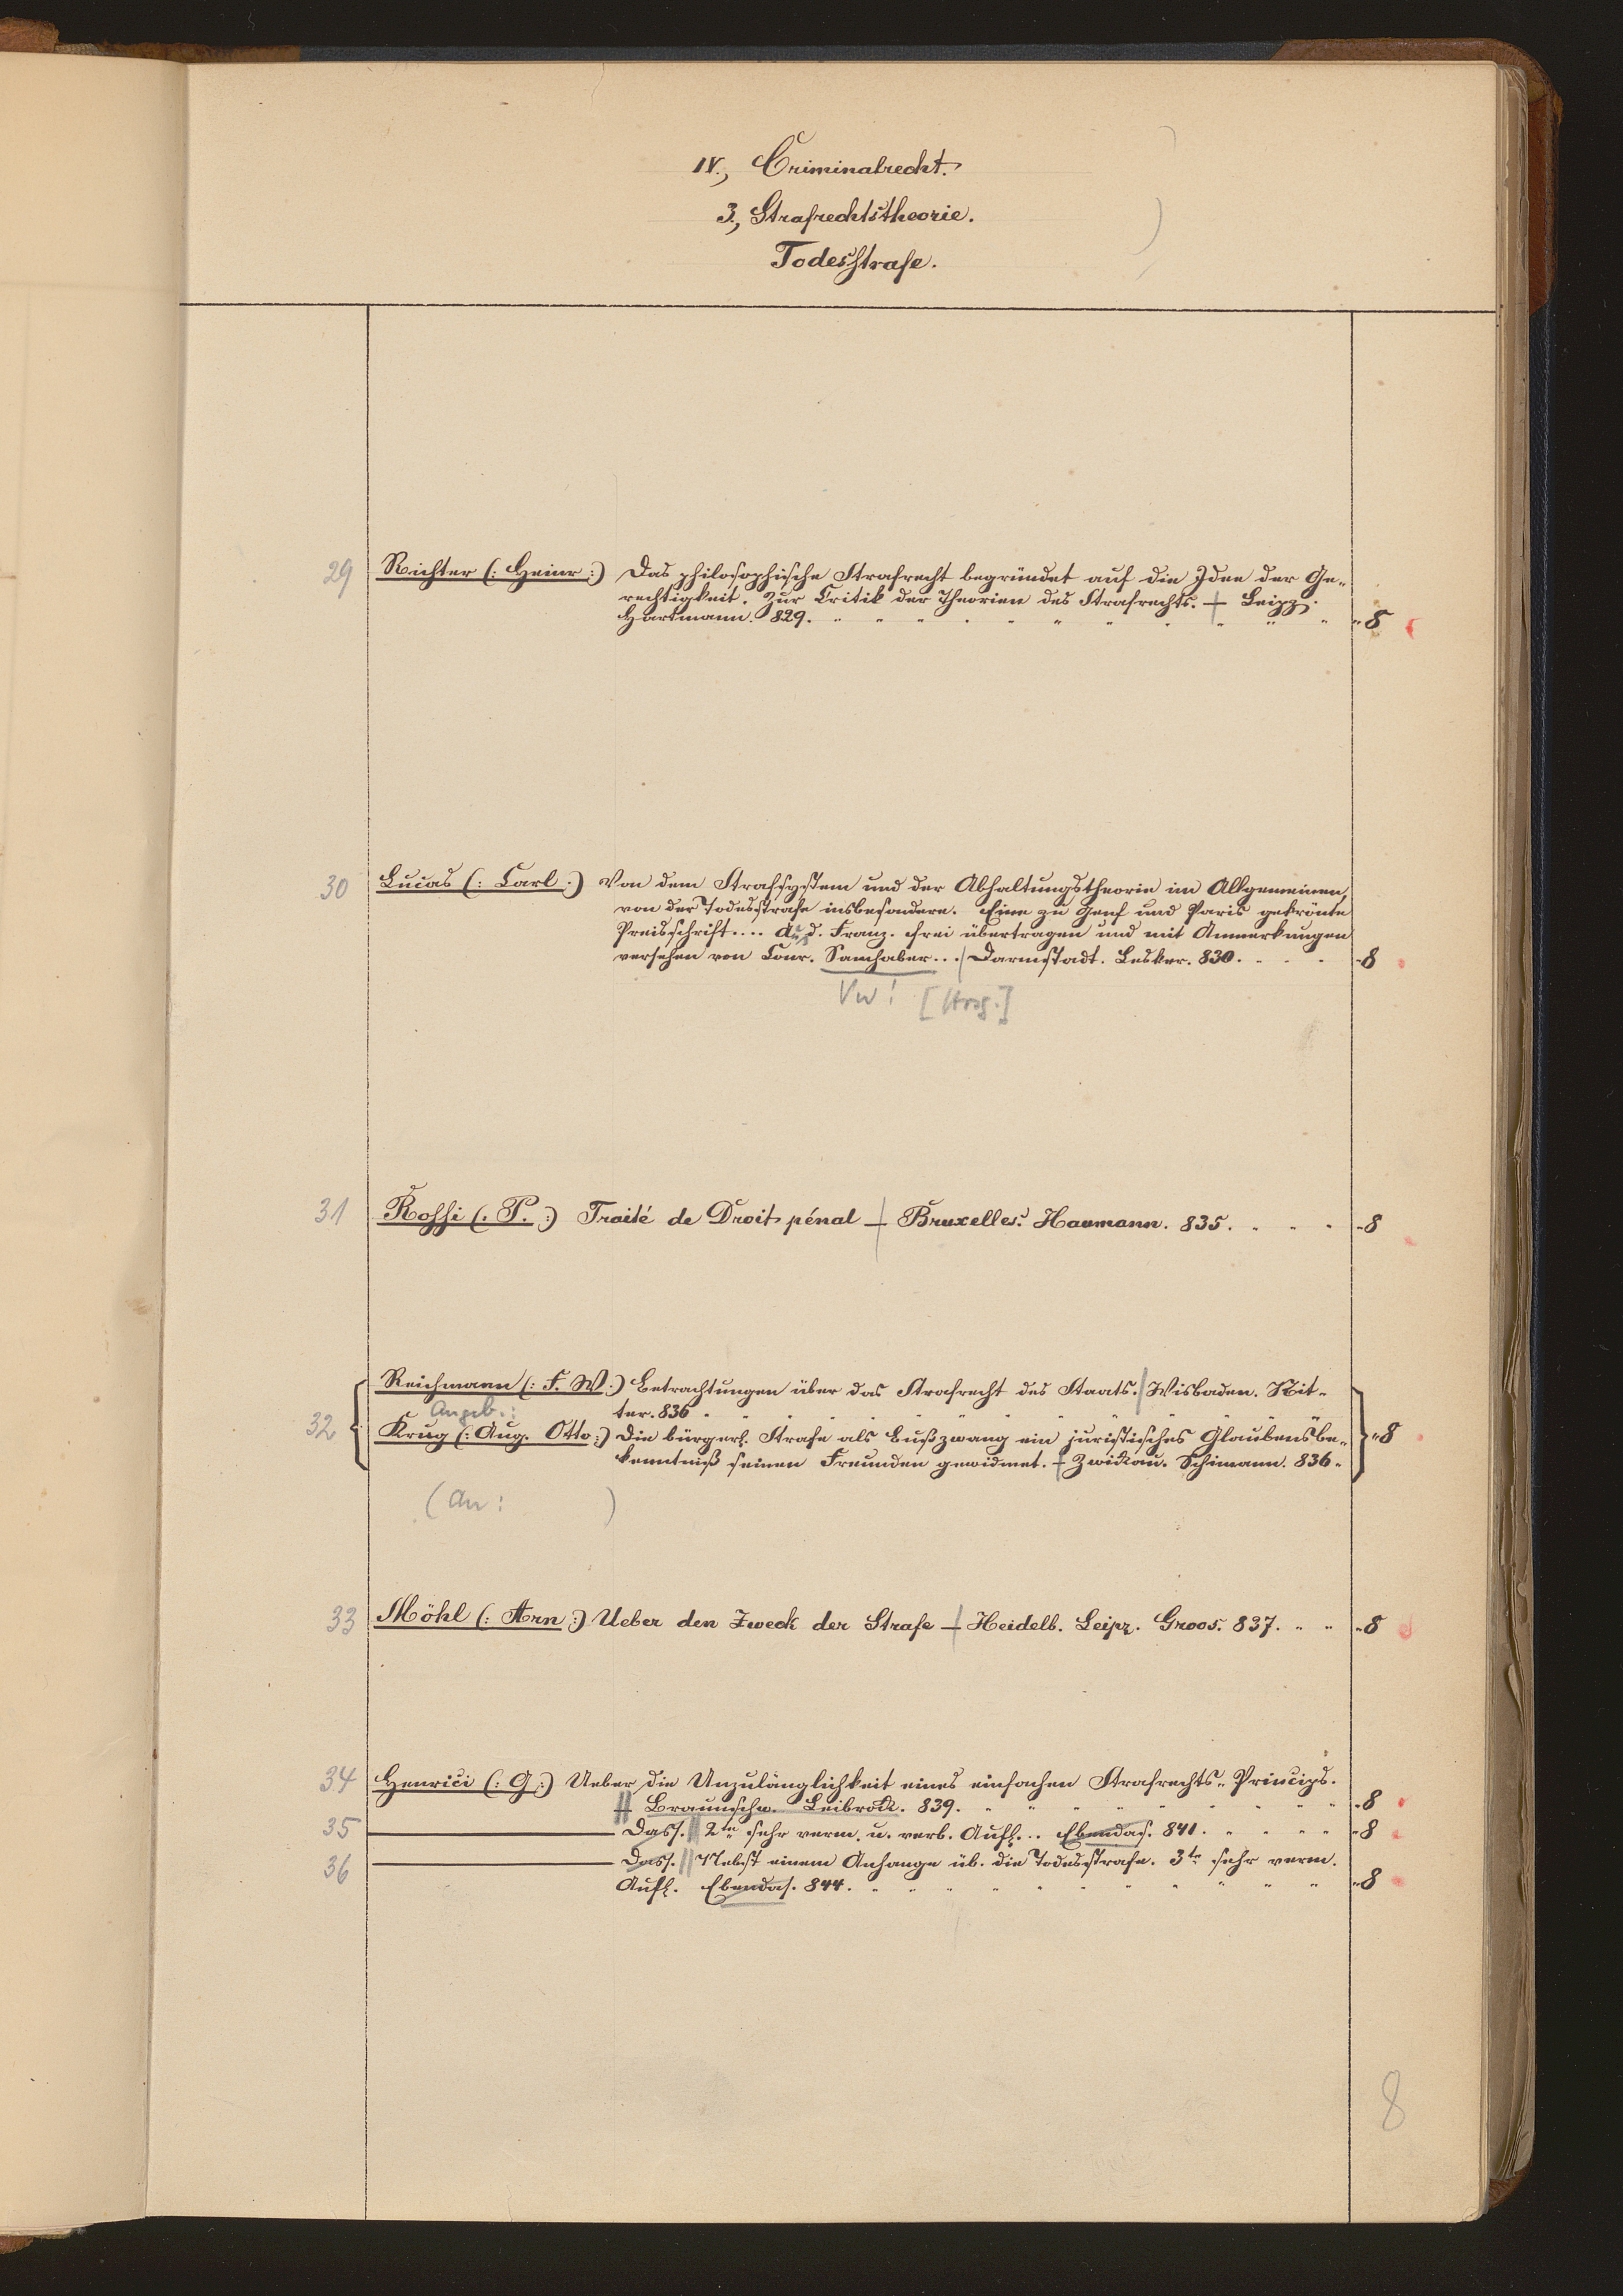 IV., Criminalrecht.
3., Strafrechtstheorie.
Todesstrafe.
29 Richter (: Heinr :) Das philosophische Strafrecht begründet auf die Idee der Ge-
rechtigkeit. Zur Critik der Theorien des Strafrechts. + Leipz.
Hartmann. 829. 8
30 Lucas (: Carl :) Von dem Strafsystem und der Abhaltungstheorie im Allgemeinen,
von der Todesstrafe insbesondere. Eine zu Genf und Paris gekrönte
Preisschrift.... Aus d. Franz. frei übertragen und mit Anmerkungen
versehen von Conr. Samhaber... / Darmstadt. Lesker. 830. 8
Vw! [Hrsg.]
31 Rossi (: P. :) Traité de Droit pénal + Bruxelles. Haumann. 835. 8
Reichmann (: F. W :) Betrachtungen über das Strafrecht des Staats. / Wisbaden. Rit-
Angeb.: ter. 836
32 Krug (: Aug. Otto :) Die bürgerl. Strafe als Bußzwang ein juristisches Glaubensbe- 8
kenntniß seinen Freunden gewidmet. + Zwickau. Schimann. 836.
(An: )
33 Möhl (: Arn :) Ueber den Zweck der Strafe + Heidelb. Leipz. Groos. 837. 8
34 Henrici (: G :) Ueber die Unzulänglichkeit eines einfachen Strafrechts-Princips.
Braunschw. Leibrock. 839. 8
35 Dass. // 2te sehr verm. u. verb. Aufl... Ebendas. 841. 8
36 Dass. // Nebst einem Anhange üb. die Todesstrafe. 3te sehr verm.
Aufl. Ebendas. 844. 8
8